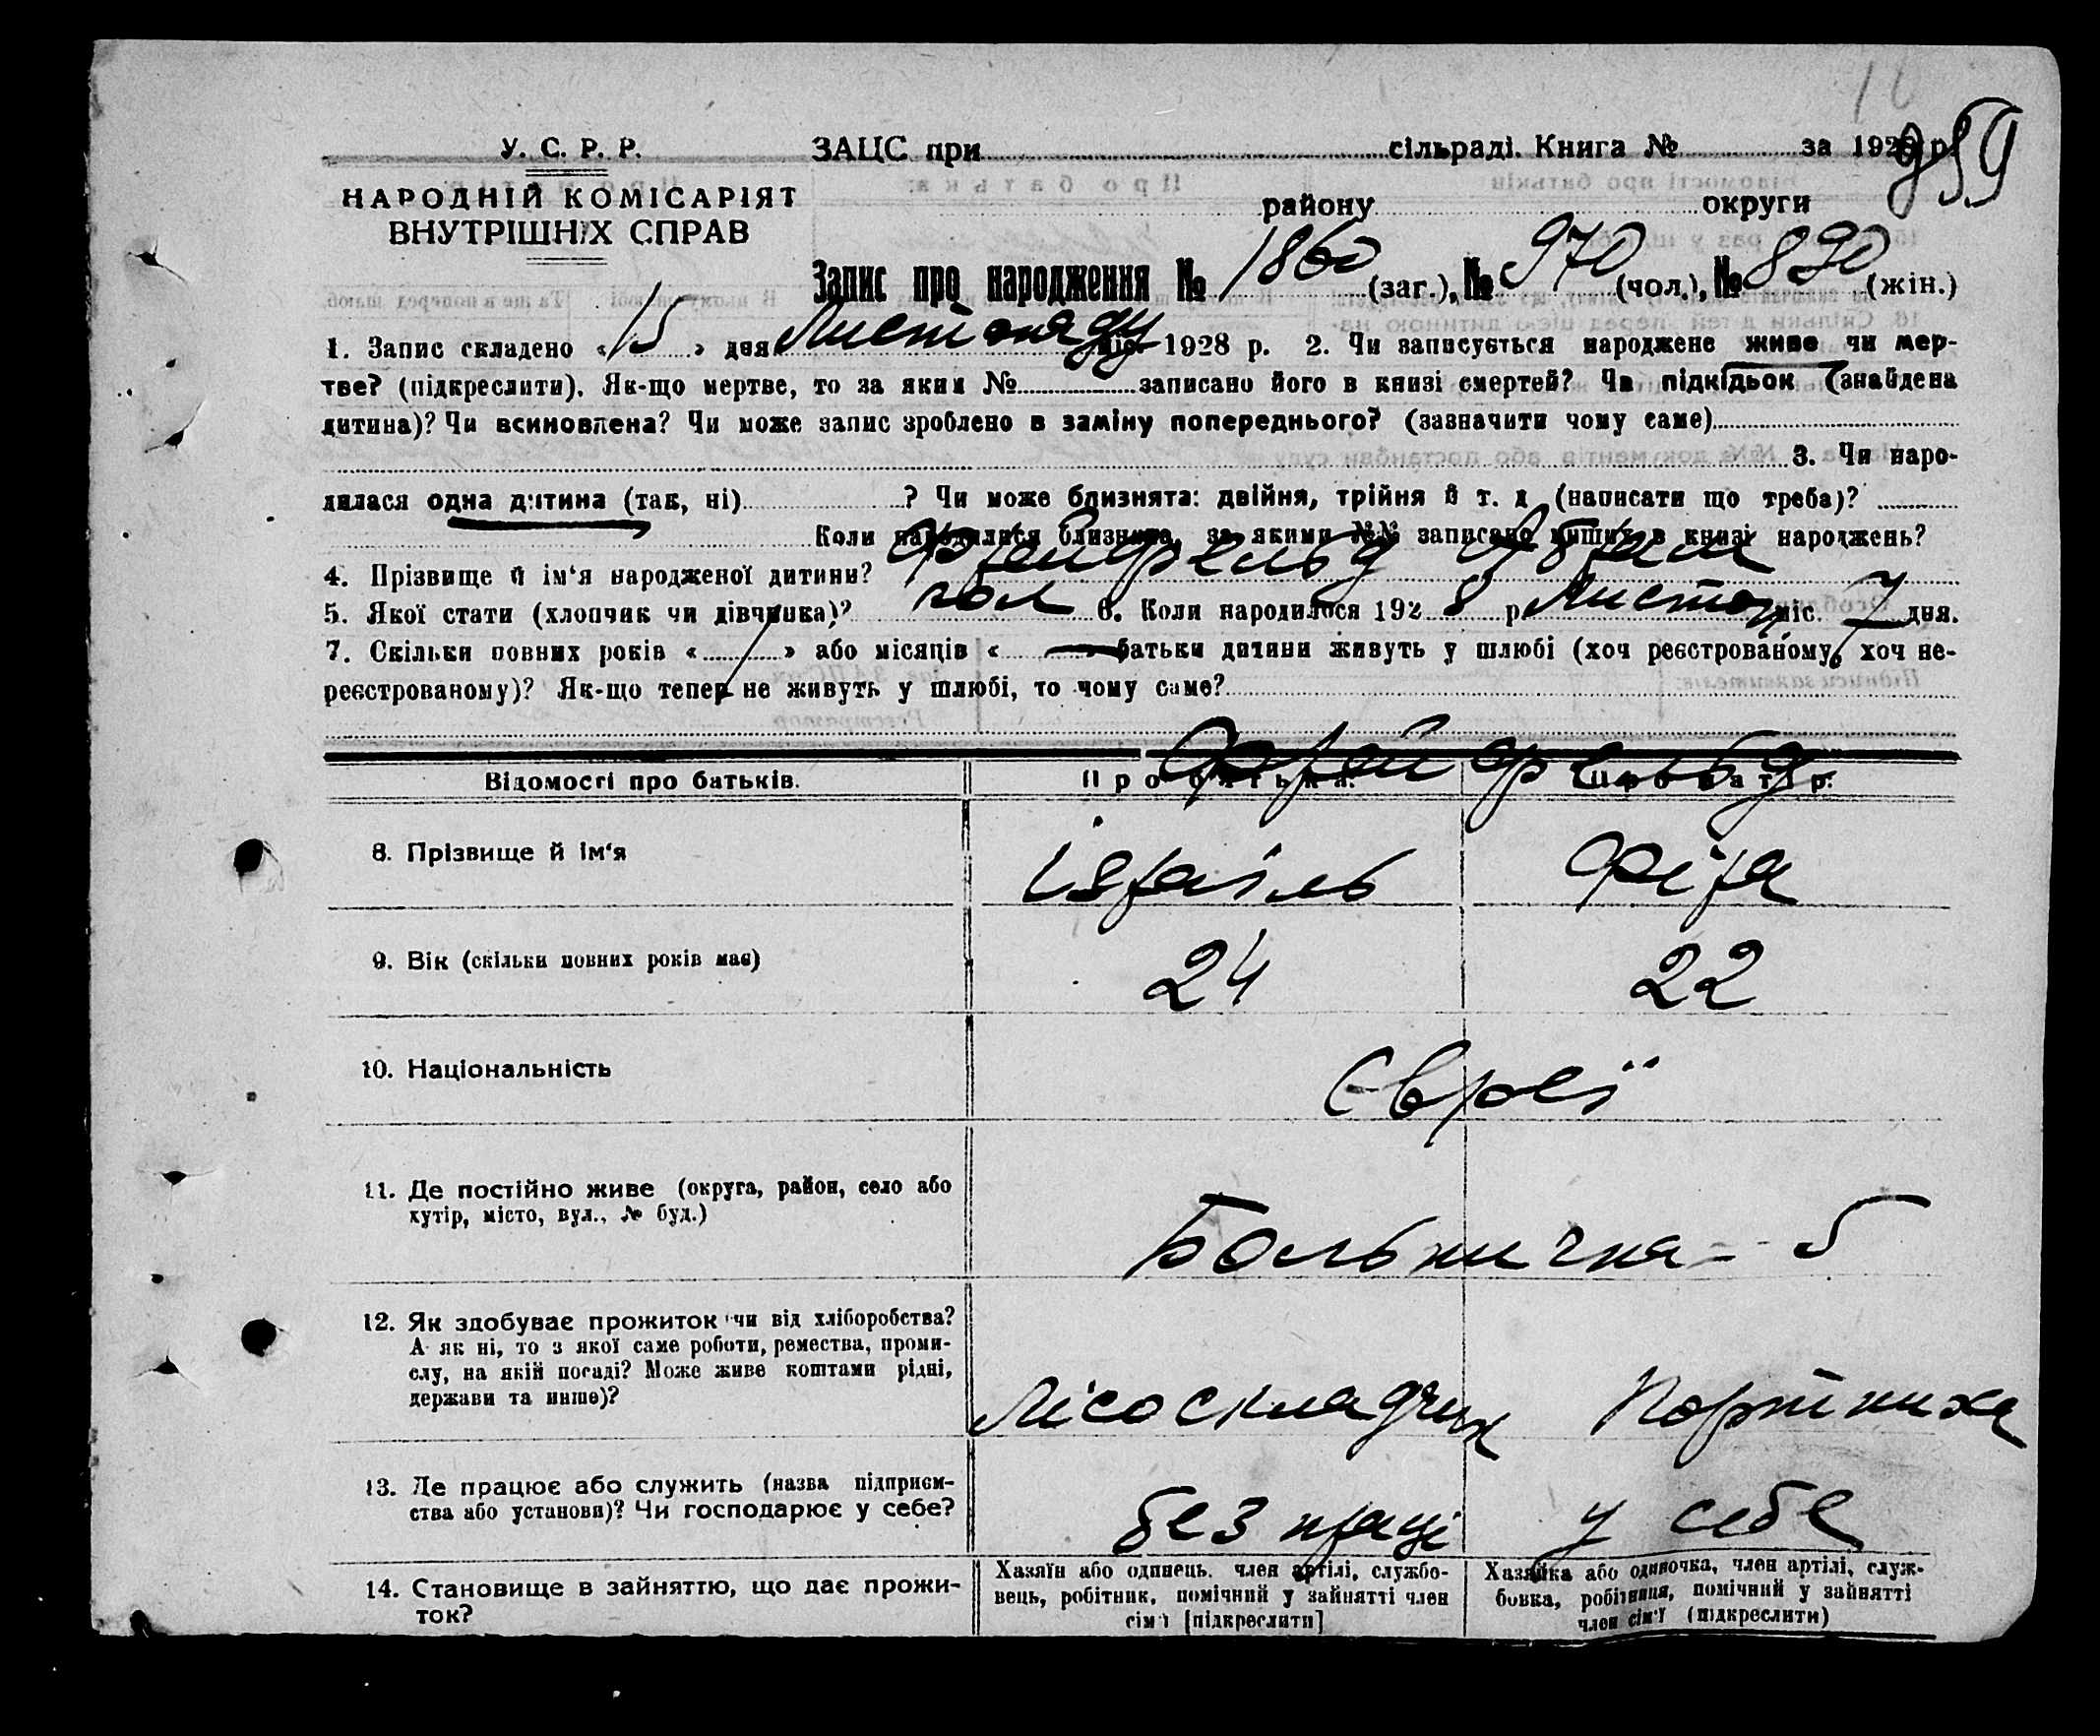 У. С. Р. Р.
НАРОДНІЙ КОМІСАРІЯТ
ВНУТРІШНІХ СПРАВ
ЗАЦС при сільраді. Книга № за 192 р.
959
району округи
Запис про народження № 1860 (заг.), № 970 (чол.), № 890 (жін.)
1. Запис складено « 15 » дня Листопаду міс. 1928 р. 2. Чи записується народжене живе чи мер-
тве? (підкреслити). Як-що мертве, то за яким № записано його в книзі смертей? Чи підкідьок (знайдена
дитина)? Чи всиновлена? Чи може запис зроблено в заміну попереднього? (зазначити чому саме)
3. Чи наро-
дилася одна дитина (так, ні) ? Чи може близнята: двійня, трійня й т. д. (написати що треба)?
Коли народилися близнята, за якими №№ записано инших в книзі народжень?
4. Прізвище й ім‘я народженої дитини? Абрам
5. Якої стати (хлопчик чи дівчинка)? чол 6. Коли народилося 192 8 р. Листоп міс. 7 дня.
7. Скільки повних років « 1 » або місяців « — » батьки дитини живуть у шлюбі (хоч реєстрованому, хоч не-
реєстрованому)? Як-що тепер не живуть у шлюбі, то чому саме?
Відомості про батьків. Про батька: Про матір:
8. Прізвище й ім‘я Ізраіль Фіра
9. Вік (скільки повних років має) 24 22
10. Національність Євреї
11. Де постійно живе (округа, район, село або
хутір, місто, вул., № буд.) Больнична - 5
12. Як здобуває прожиток чи від хліборобства?
А як ні, то з якої саме роботи, ремества, проми-
слу, на якій посаді? Може живе коштами рідні,
держави та инше)? Лісоскладчик Портниха
13. Де працює або служить (назва підприєм-
ства або установи)? Чи господарює у себе? без праці у себе
14. Становище в зайняттю, що дає прожи-
ток?
Хазяїн або одинець, член артілі, службо-
вець, робітник, помічний у зайнятті член
сім‘ї [підкреслити]
Хазяйка або одиночка, член артілі, служ-
бовка, робітниця, помічний у зайнятті
член сім‘ї (підкреслити)